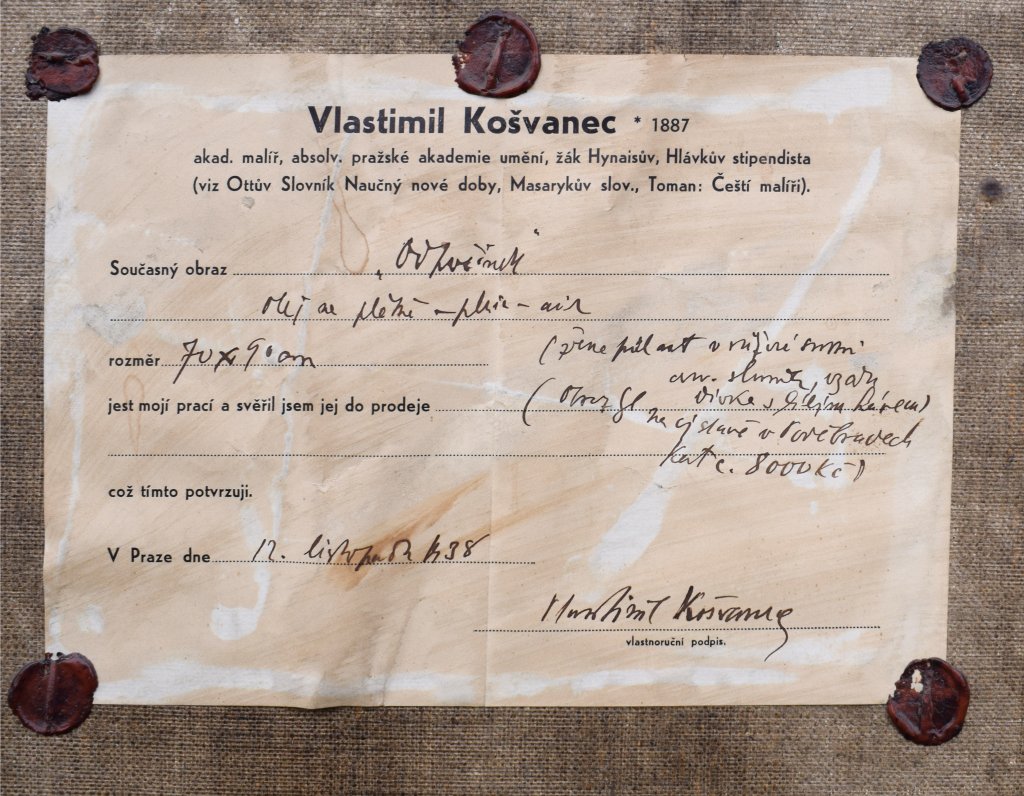 Vlastimil Košvanec * 1887
akad. malíř, absolv. pražské akademie umění, žák Hynaisův, Hlávkův stipendista
(viz Ottův Slovník Naučný nové doby, Masarykův slov., Toman: Čeští malíři).
Současný obraz „Odpočinek“
olej na plátně – plein – air
rozměr 70 x 90 cm
(žena půl akt v
slunce, vzadu
jest mojí prací a svěřil jsem jej do prodeje (Obraz
dívka s bílým
na výstavě v Poděbradech
kat. č. 8000 Kč)
což tímto potvrzuji.
V Praze dne 12. listopadu 1938
Vlastimil Košvanec
vlastnoruční podpis.